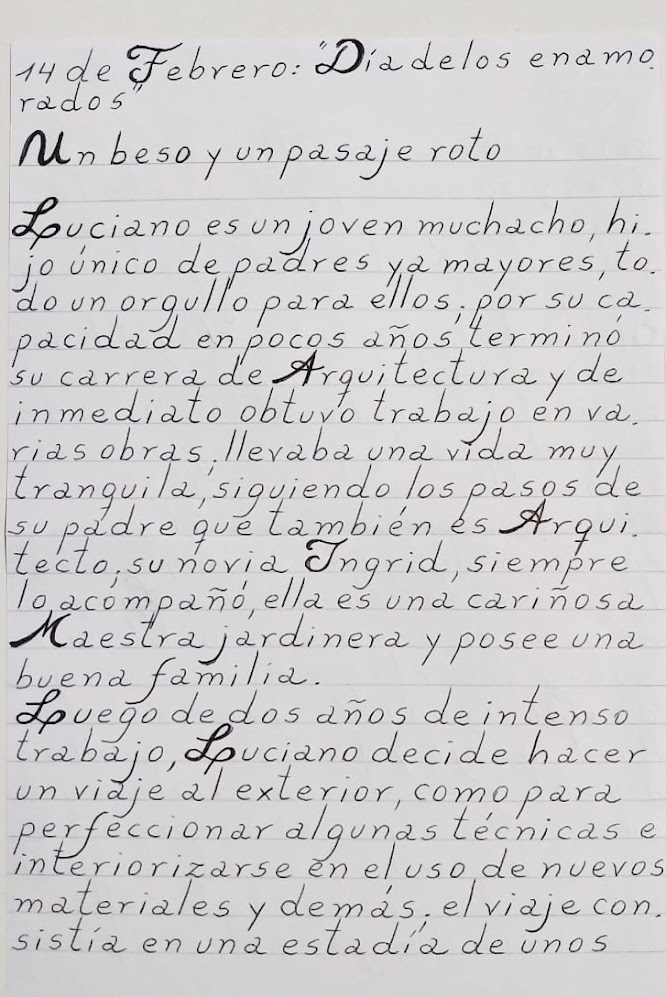 14 de Febrero: "Día de los enamo.
rados"
Un beso y un pasaje roto
Luciano es un joven muchacho, hi.
jo único de padres ya mayores, to.
do un orgullo para ellos; por su ca.
pacidad en pocos años terminó
su carrera de Arquitectura y de
inmediato obtuvo trabajo en va.
rias obras; llevaba una vida muy
tranquila, siguiendo los pasos de
su padre que también es Arqui.
tecto; su novia Ingrid, siempre
lo acompañó, ella es una cariñosa
Maestra jardinera y posee una
buena familia.
Luego de dos años de intenso
trabajo, Luciano decide hacer
un viaje al exterior, como para
perfeccionar algunas técnicas e
interiorizarse en el uso de nuevos
materiales y demás; el viaje con.
sistía en una estadía de unos